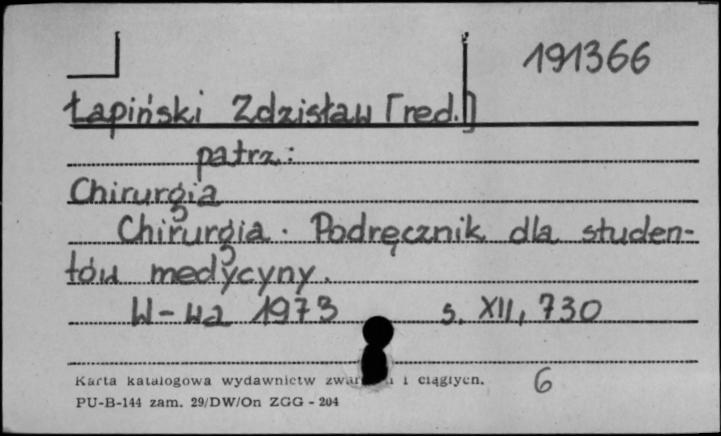 191366
Łapiński Zdzisław [red.]
patrz:
Chirurgia
Chirurgia. Podręcznik dla studen-
tów medycyny.
W-wa 1973 s. XII, 730
6
Karta katalogowa wydawnictw i ciągłych.
PU-B-144 zam. 29/DW/On ZGG - 204